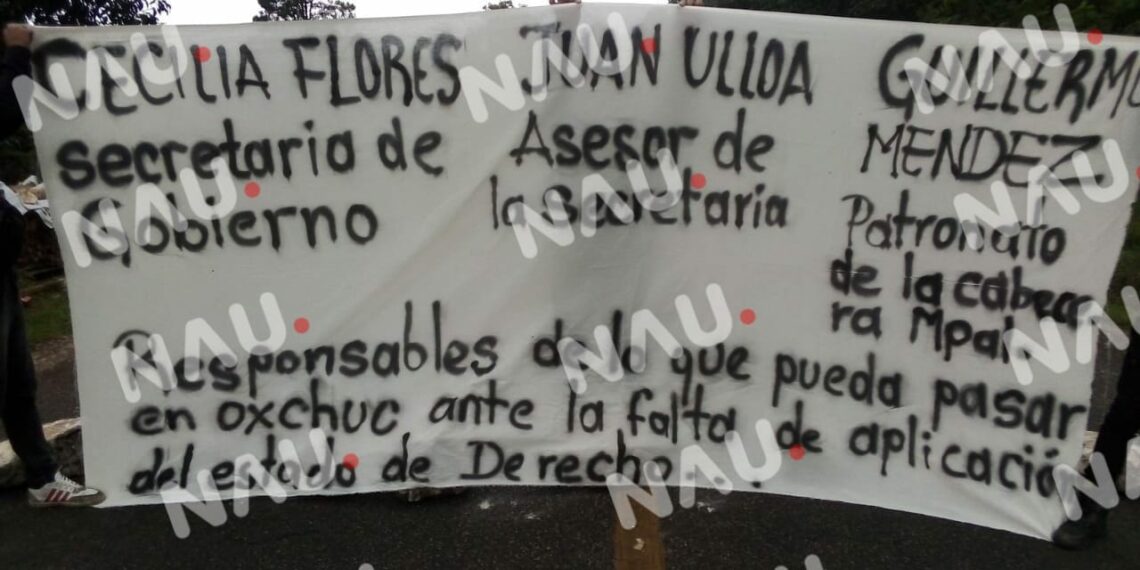 CECILIA FLORES
secretaria de
Gobierno
JUAN ULLOA
Asesor de
la secretaria
GUILLERMO
MENDEZ
Patronato
de la cabece
ra Mpal.
Responsables de lo que pueda pasar
en oxchuc ante la falta de aplicació
del estado de Derecho.
NAU.
NAU.
NAU.
NAU.
NAU.
NAU.
NAU.
NAU.
NAU.
NAU.
NAU.
NAU.